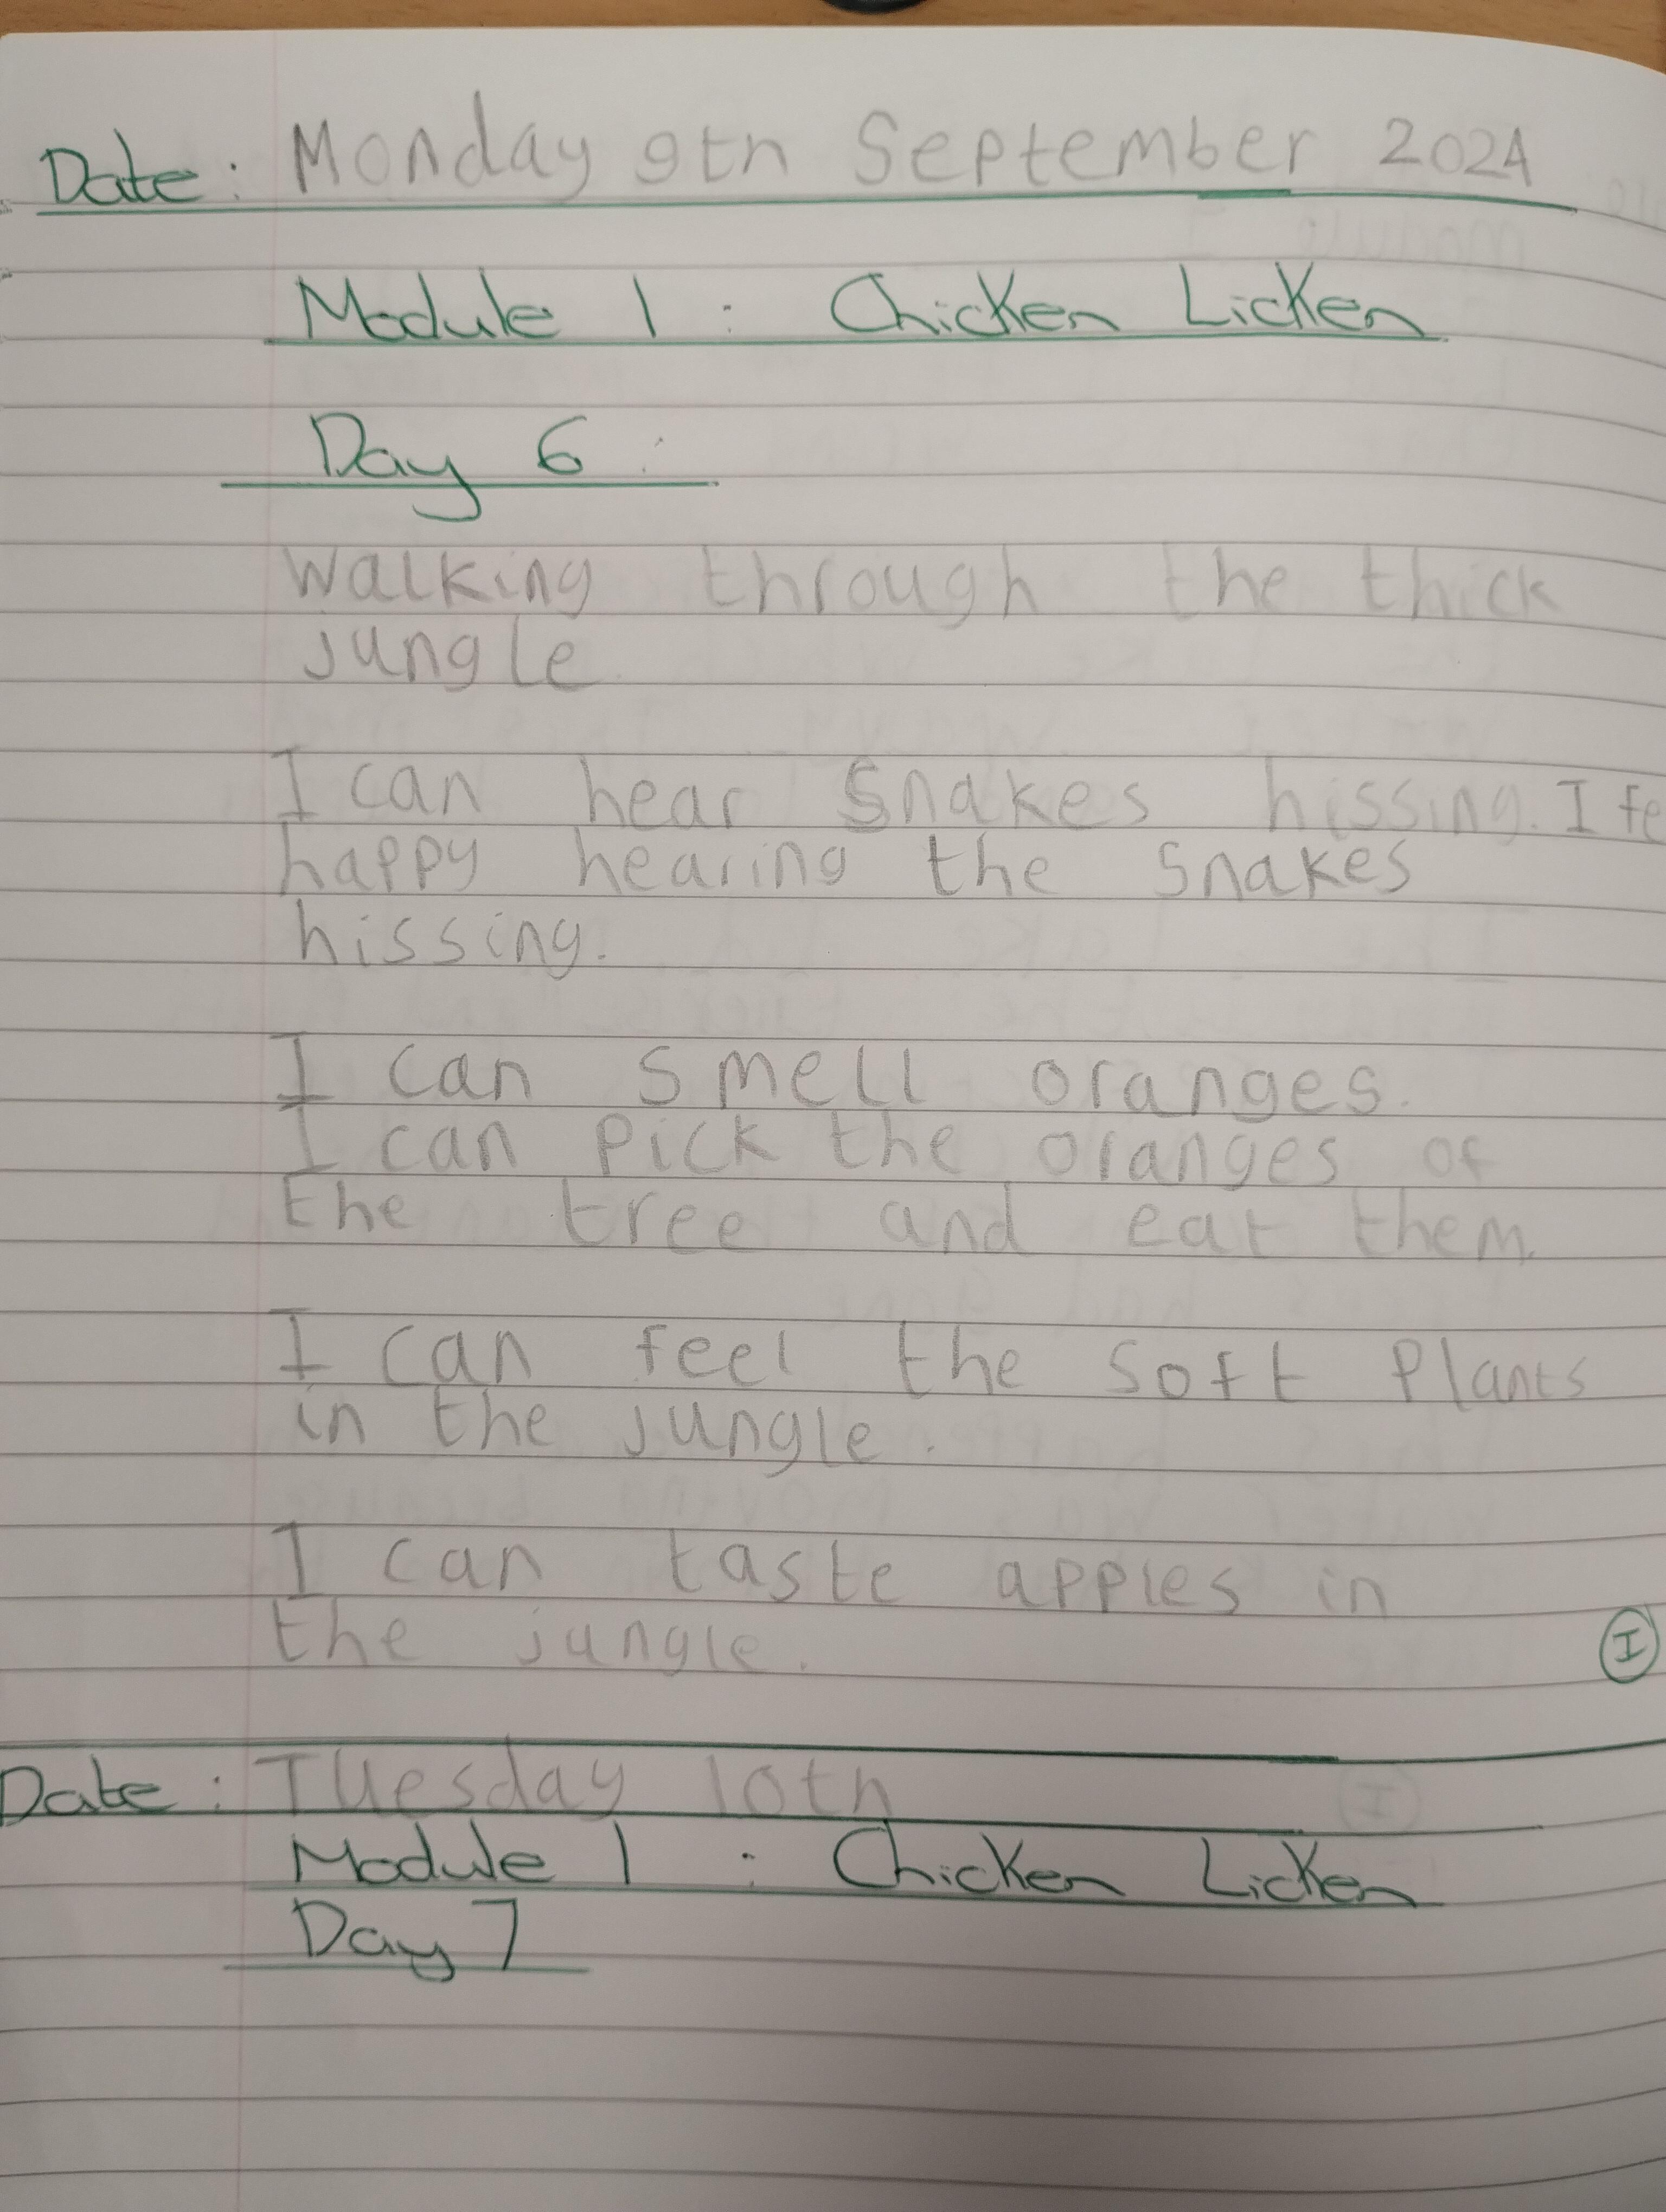 Date: Monday 9th September 2024
Module 1: Chicken Licken
Day 6:
Walking through the thick
jungle
I can hear snakes hissing. I fe
happy hearing the snakes
hissing.
I can smell oranges.
I can pick the oranges of
the tree and eat them.
I can feel the soft plants
in the jungle.
I can taste apples in
the jungle.
I
Date: Tuesday 10th
Module 1: Chicken Licken
Day 7